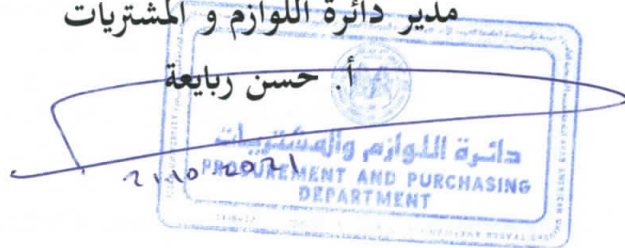 مدير دائرة اللوازم و المشتريات
أ. حسن ربايعة
دائرة اللوازم والمشتريات
PROCUREMENT AND PURCHASING
DEPARTMENT
21.10.2021